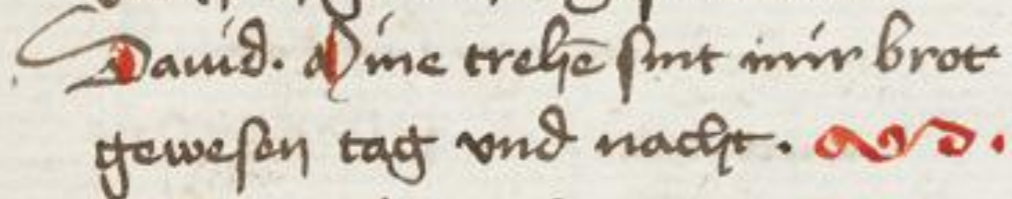 Dauid. Mine trehē sint mir brot
gewesen tag vnd nacht.